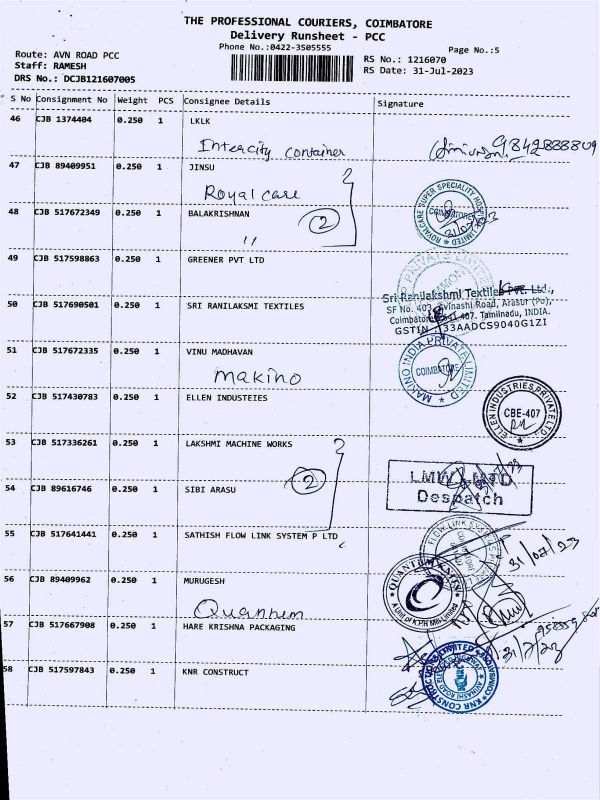 THE PROFESSIONAL COURIERS, COIMBATORE
Delivery Runsheet - PCC
Phone No.:0422-3505555
Page No.:5
Route: AVN ROAD PCC
Staff: RAMESH
DRS No.: DCJB121607005
RS No.: 1216070
RS Date: 31-Jul-2023
S No Consignment No Weight PCS Consignee Details Signature
46 CJB 1374404 0.250 1 LKLK
Intercity container 9842888809
47 CJB 89409951 0.250 1 JINSU
Royal care
ROYALCARE SUPER SPECIALITY HOSPITAL LIMITED
COIMBATORE
48 CJB 517672349 0.250 1 BALAKRISHNAN
2
〃
49 CJB 517598863 0.250 1 GREENER PVT LTD
50 CJB 517690501 0.250 1 SRI RANILAKSMI TEXTILES
Sri Ranilakshmi Textiles Pvt. Ltd.,
SF No. 403, Avinashi Road, Arasur (Po),
Coimbatore 641 407. Tamilnadu, INDIA.
GSTIN : 33AADCS9040G1ZI
51 CJB 517672335 0.250 1 VINU MADHAVAN
Makino
MAKINO INDIA PRIVATE LIMITED
COIMBATORE
52 CJB 517430783 0.250 1 ELLEN INDUSTEIES
ELLEN INDUSTRIES PRIVATE LTD
CBE-407
53 CJB 517336261 0.250 1 LAKSHMI MACHINE WORKS
2
54 CJB 89616746 0.250 1 SIBI ARASU
LMW
Despatch
55 CJB 517641441 0.250 1 SATHISH FLOW LINK SYSTEM P LTD
FLOW LINK SYSTEMS
31/07/23
56 CJB 89409962 0.250 1 MURUGESH
Quantum
QUANTUM KNITS
A Unit of K.P.R Mill Limited
57 CJB 517667908 0.250 1 HARE KRISHNA PACKAGING
31/7/23
58 CJB 517597843 0.250 1 KNR CONSTRUCT
KNR CONSTRUCTIONS LIMITED